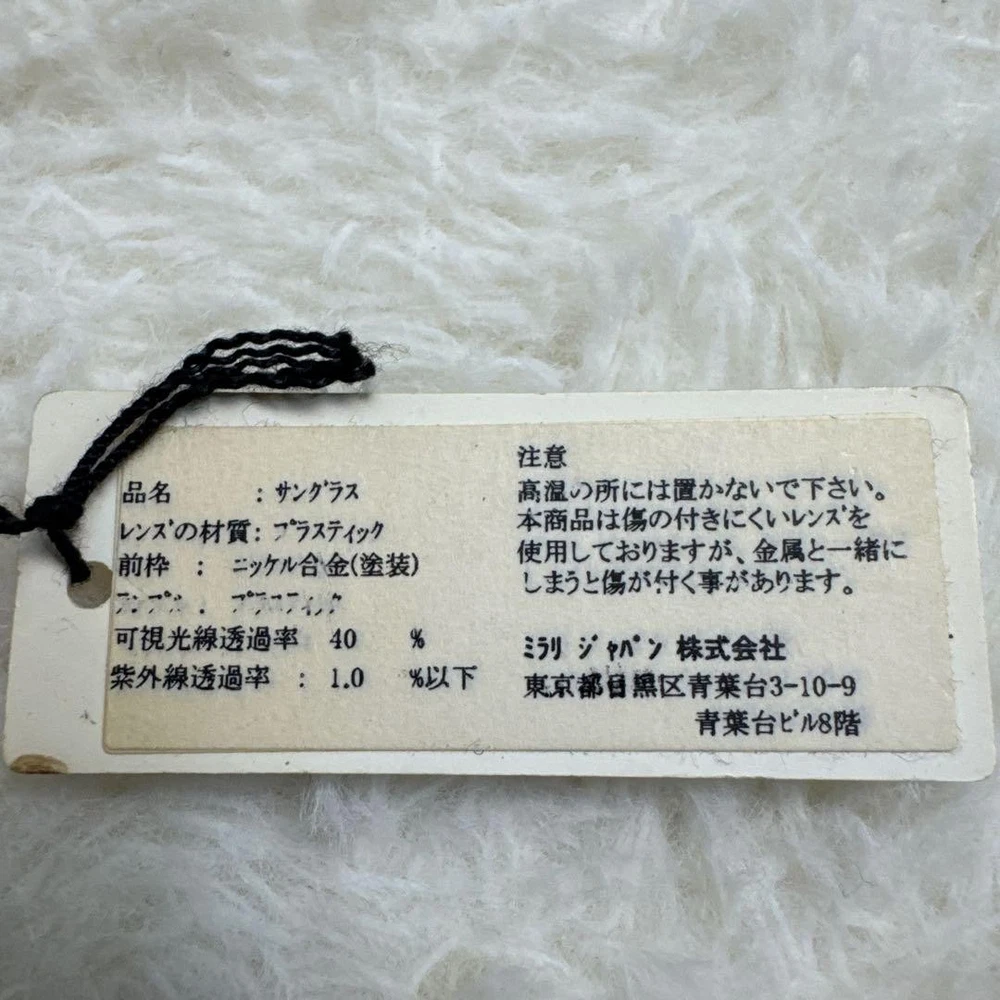 品名 : サングラス
レンズの材質: プラスティック
前枠 : ニッケル合金(塗装)
テンプル : プラスティック
可視光線透過率 40 %
紫外線透過率 : 1.0 %以下
注意
高温の所には置かないで下さい。
本商品は傷の付きにくいレンズを
使用しておりますが、金属と一緒に
しまうと傷が付く事があります。
ミラリ ジャパン 株式会社
東京都目黒区青葉台3-10-9
青葉台ビル8階